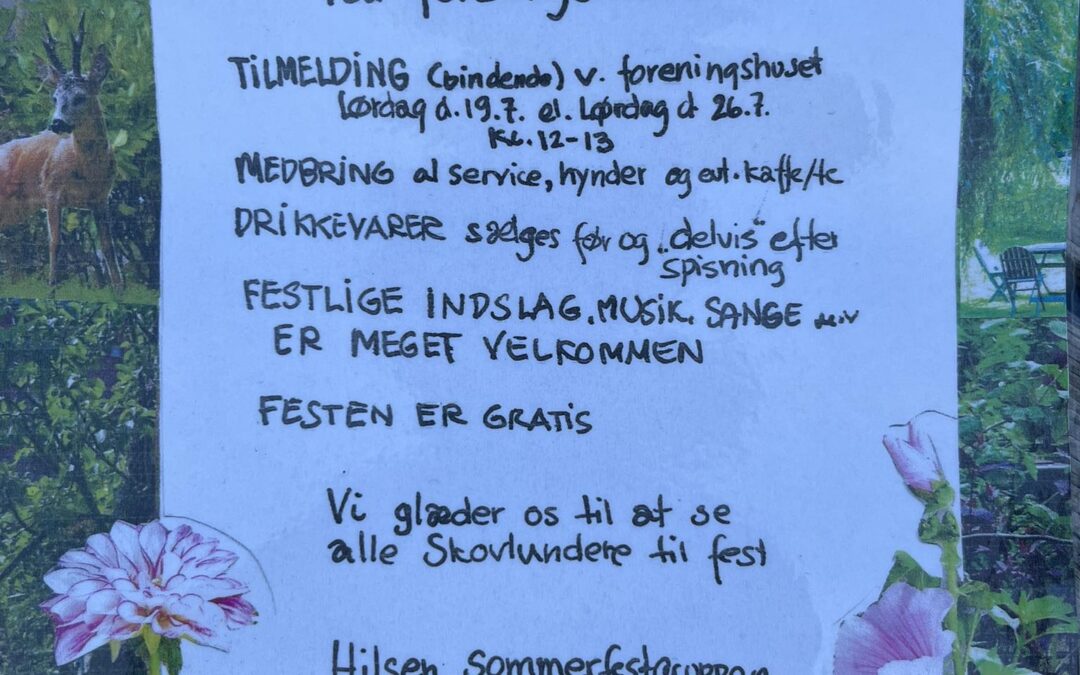 TILMELDING (bindende) v. foreningshuset
Lørdag d. 19.7. el. Lørdag d 26.7.
Kl. 12-13
MEDBRING al service, hynder og evt. kaffe/te
DRIKKEVARER sælges før og „delvis" efter
spisning
FESTLIGE INDSLAG. MUSIK. SANGE m.v
ER MEGET VELKOMMEN
FESTEN ER GRATIS
Vi glæder os til at se
alle Skovlundere til fest
Hilsen Sommerfestgruppen